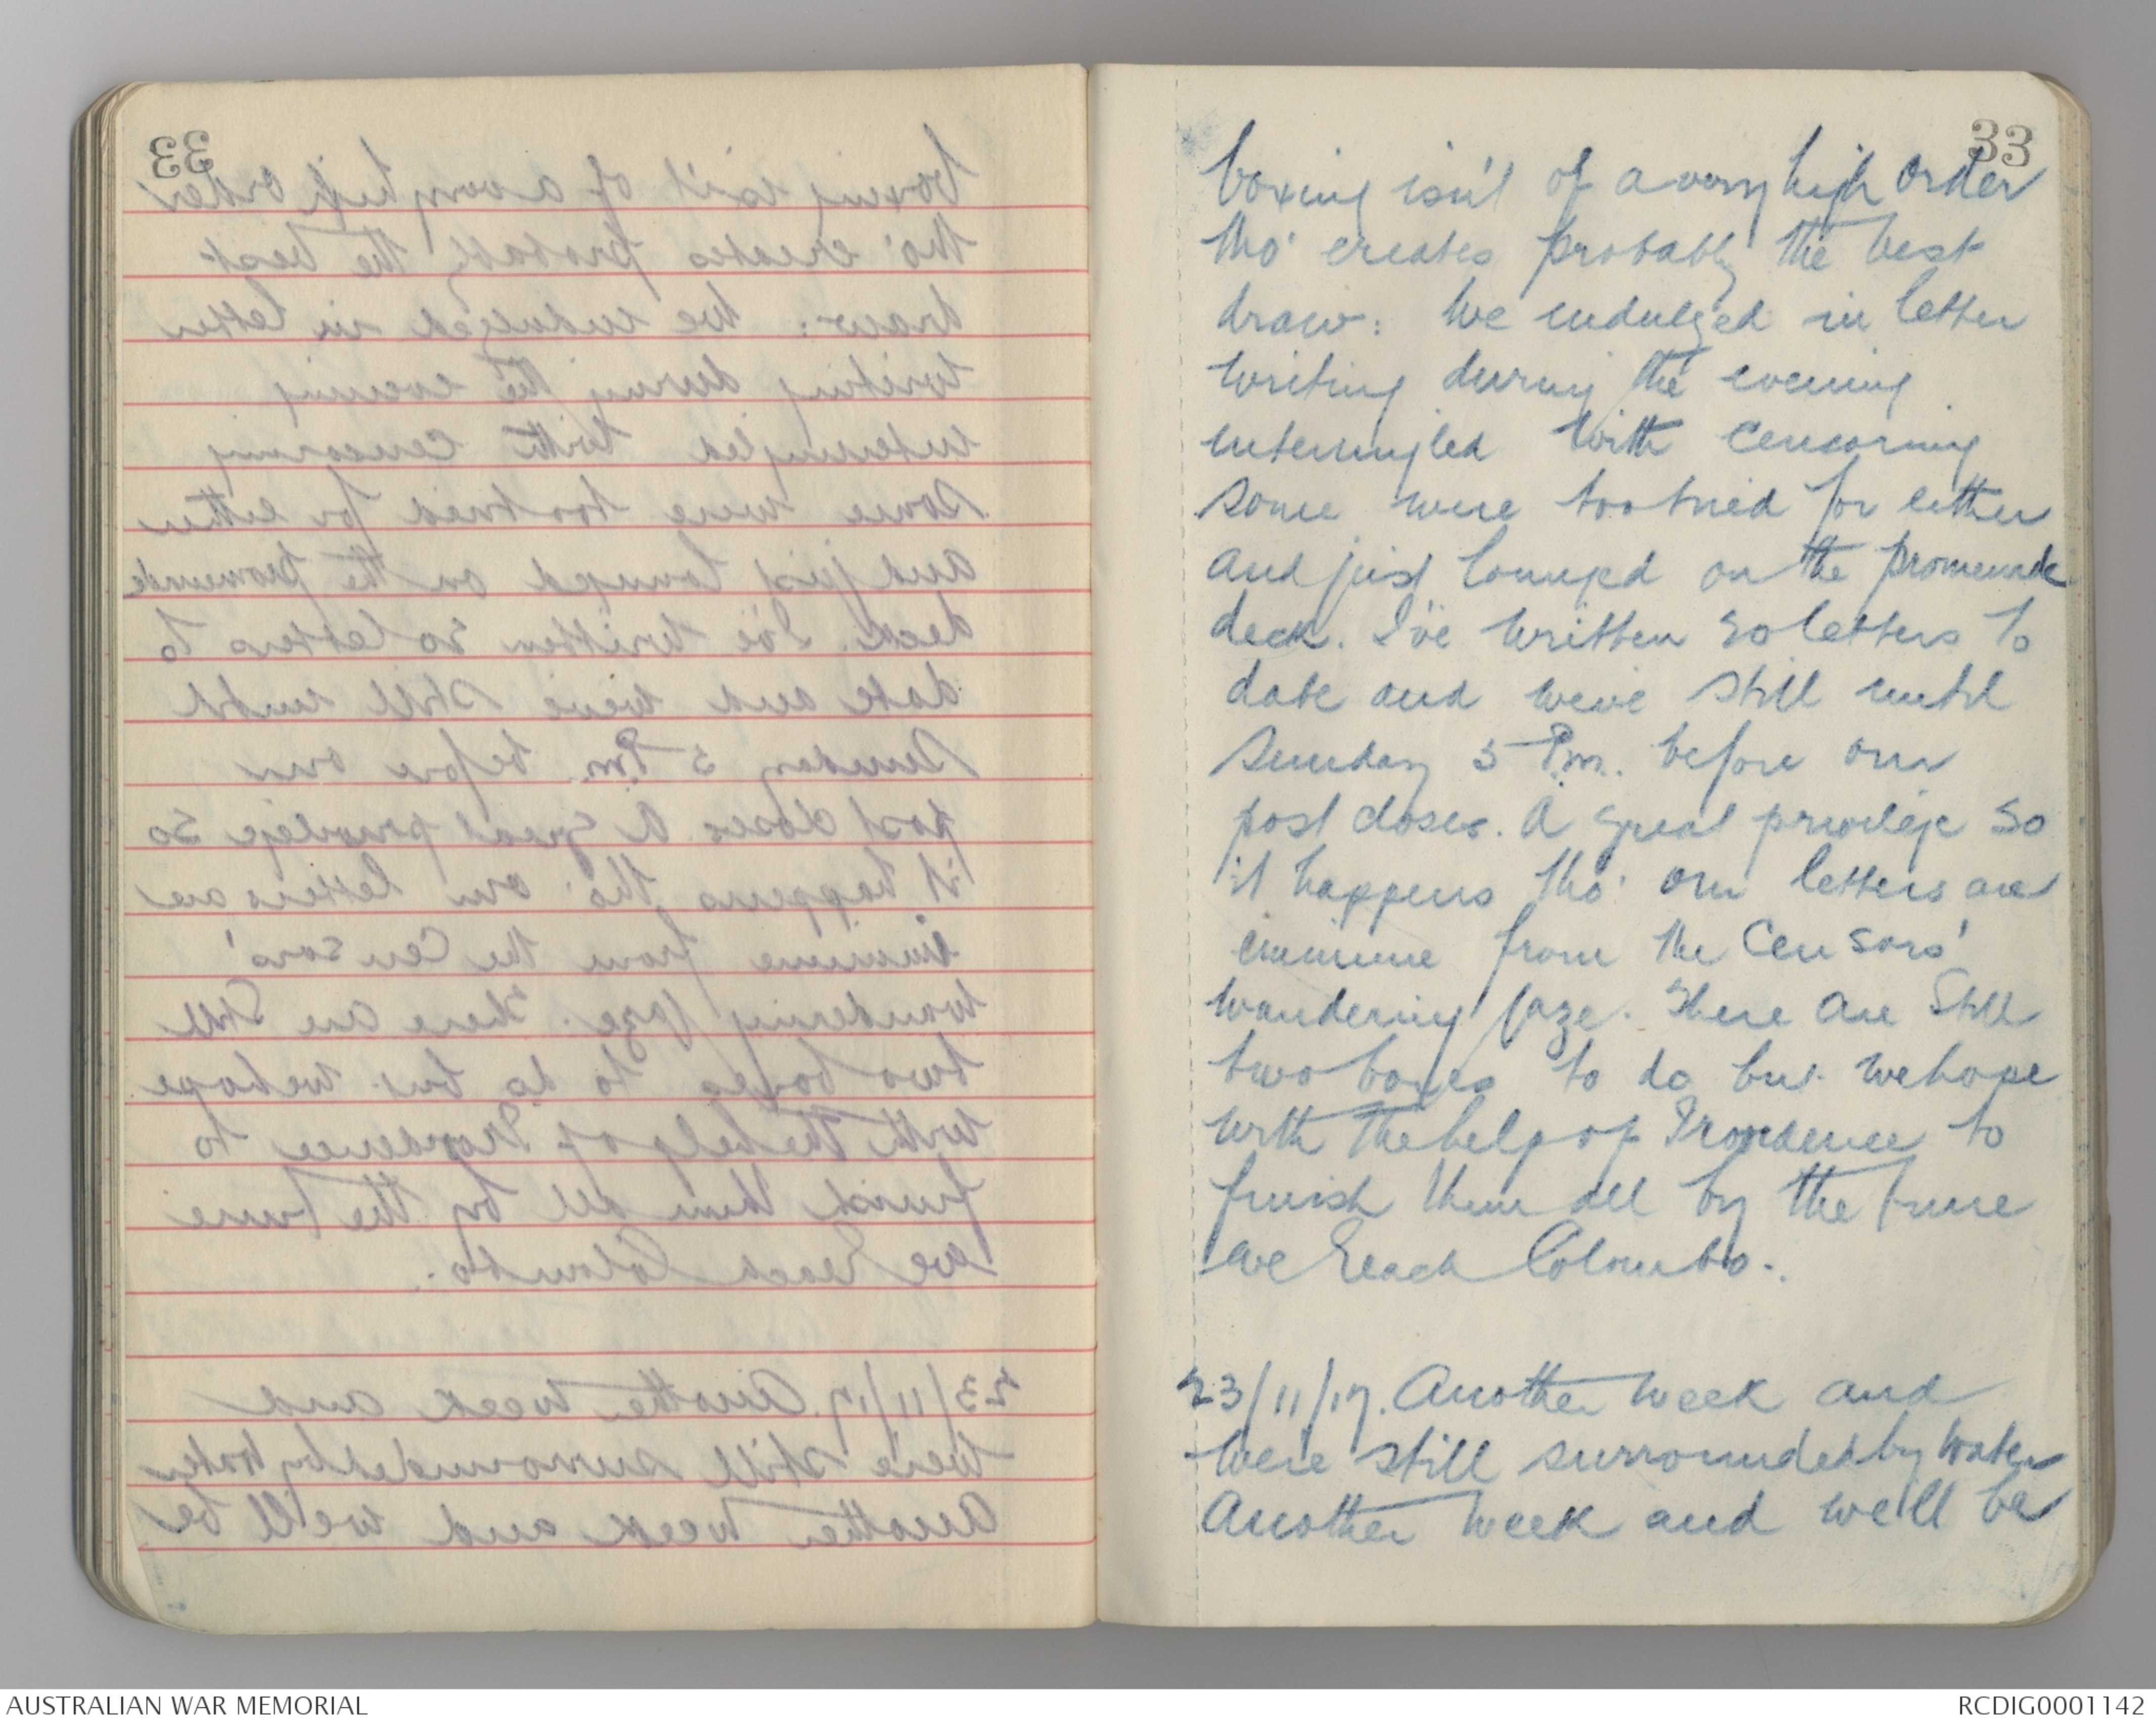 33
boxing isn't of a very high order
tho' creates probably the best
draw: We indulged in letter
writing during the evening
intermingled with cencoring
some were too tried for either
and just lounged on the promenade
deck. I've written 30 letters to
date and we've still until
Sunday 5 P.m. before our
post closes. A great privilege so
it happens tho' our letters are
immune from the Censors'
wandering gaze. There are still
two boxes to do but we hope
with the help of Providence to
finish them all by the time
we reach Colombo.
23/11/17. Another week and
we're still surrounded by water
Another week and we'll be
AUSTRALIAN WAR MEMORIAL
RCDIG0001142